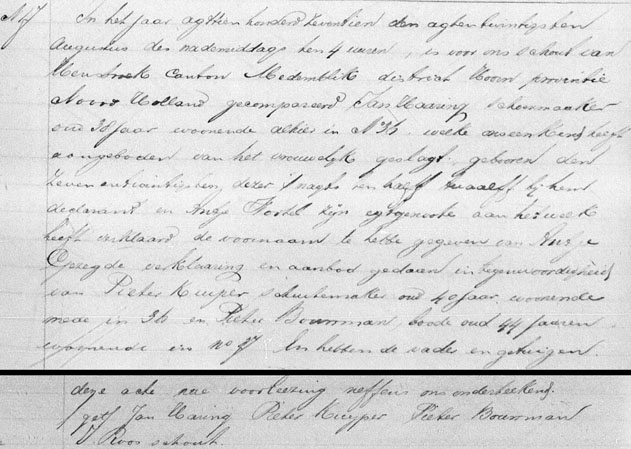 N 7
In het jaar agttien honderd zeventien den agtentwintigsten
Augustus des nademiddags ten 4 uuren, is voor ons schout van
Canton Medemblik district Hoorn provintie
Noord Holland gecompareerd Jan Haaring schoenmaaker
oud 38 jaar woonende alhier in N 36 welke ons een kind heeft
aangeboden van het vrouwelijk geslagt, gebooren den
zeven en twintigsten, dezer 's nagts ten half twaalf bij hem
declarand en Antje zijn egtgenoote aan het welk
heeft verklaard de voornaam te hebbe gegeven van Antje
Opzegde verklaaring en aanbod gedaan in tegenwoordigheid
van Pieter Kuijper schuitemaker oud 40 jaar, woonende
mede in 36 en Pieter Bouwman, boode oud 44 jaaren
woonende in no 37 En hebben de vader en getuigen
deze acte nae voorleezing neffens ons onderteekend.
get Jan Haring Pieter Kuyper Pieter Bouwman
Roos schout